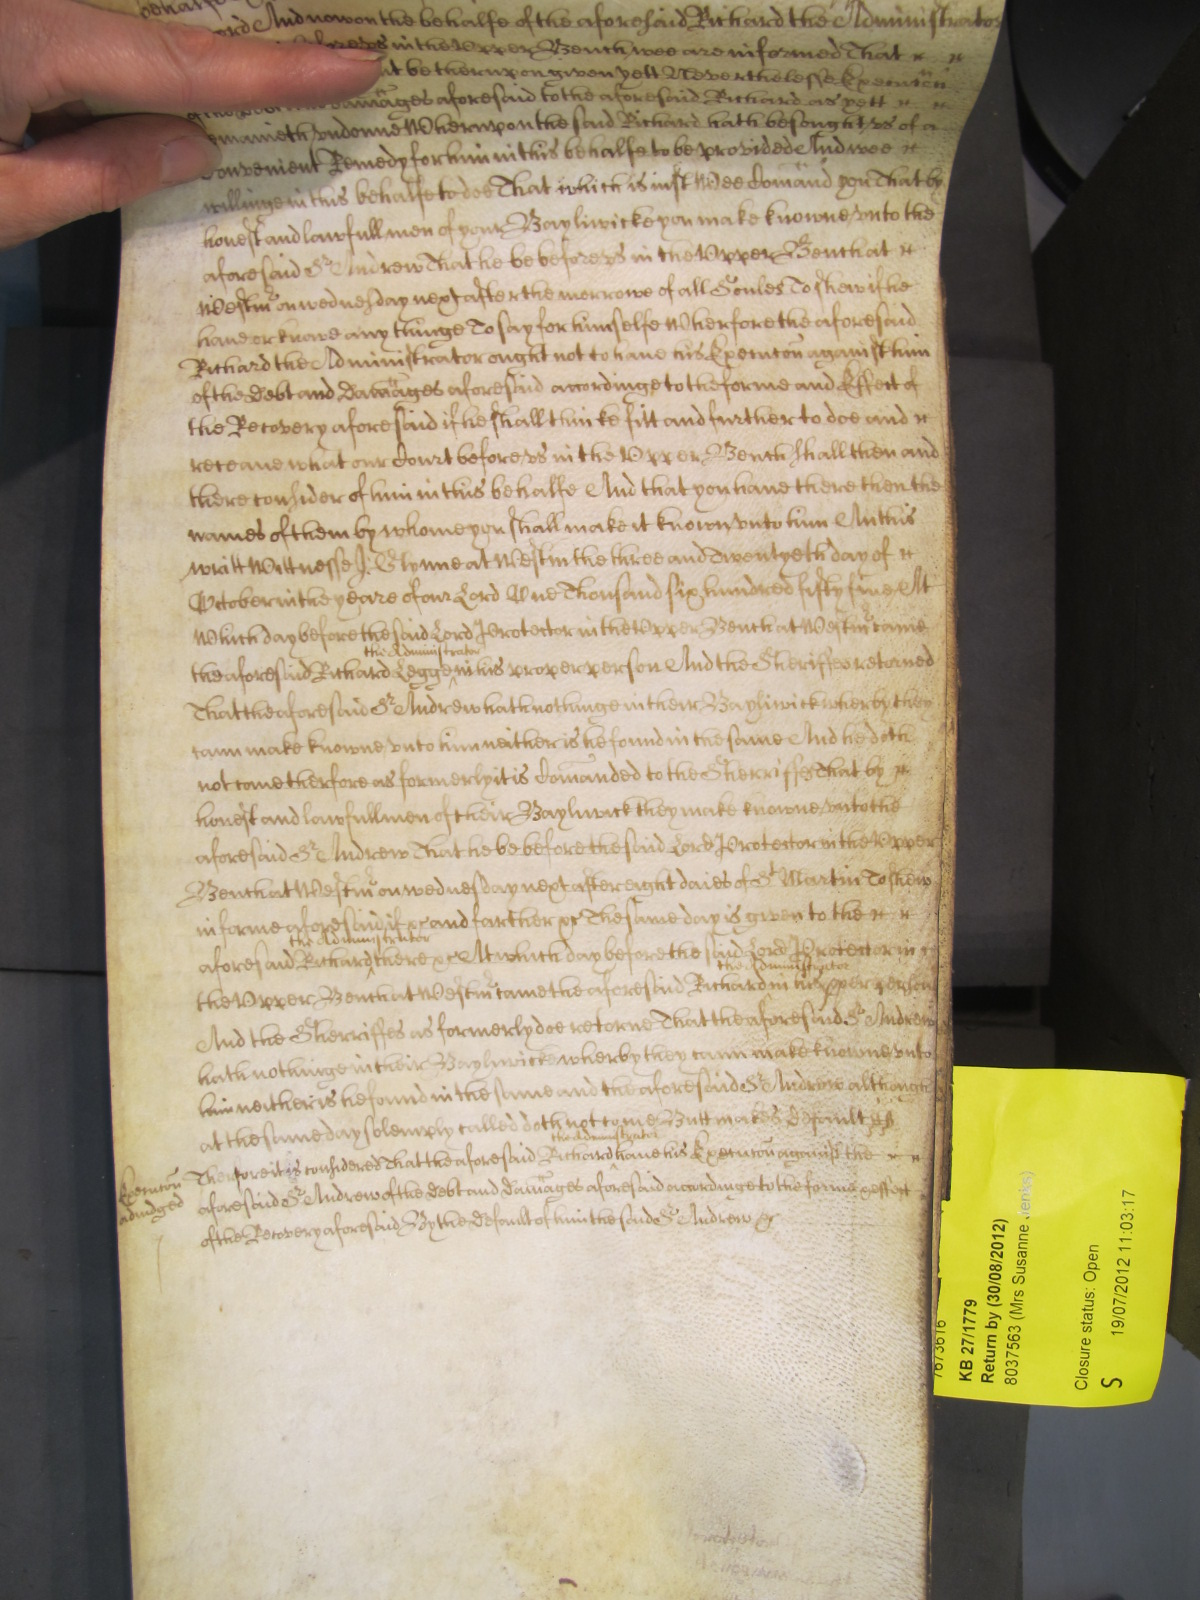 behalfe
ord And now on the behalfe of the aforesaid Richard the Administrator
before vs in the Vpper Bench wee are informed That
be thervpon given yett Neverthelesse Execucōn
damãges aforesaid to the aforesaid Richard as yett
remaineth vndonne Whervpon the said Richard hath besought vs of a
Convenient Remedy for him in this behalfe to be provided And wee
willinge in this behalfe to doe That which is iust Wee Comãnd you That by
honest and lawfull men of your Bayliwicke you make knowne vnto the
aforesaid Sr. Andrew That he be before vs in the Vpper Bench at
Westmr on wednesday next after the morrowe of all Soules To shew if he
haue or knowe any thinge To say for himselfe Wherfore the aforesaid
Richard the Administrator ought not to haue his Execucōn against him
of the Debt and Damãges aforesaid accordinge to the forme and Effect of
the Recovery aforesaid if he shall thinke fitt and further to doe and
receaue what our Court before vs in the Vpper Bench shall then and
there consider of him in this behalfe And that you haue there then the
names of them by whome you shall make it known vnto him And this
writt Wittnesse J: Glynne at Westm the three and Twentyeth day of
October in the yeare of our Lord One Thousand six hundred fifty fiue At
Which day before the said Lord Protector in the Vpper Bench at Westmr came
the Administrator
the aforesaid Richard Legge in his proper person And the Sheriffes retorned
That the aforesaid Sr. Andrew hath nothinge in their Bayliwick wherby they
cann make knowne vnto him neither is he found in the same And he doth
not come therfore as formerly it is Comãnded to the Sherriffes That by
honest and lawfull men of their Bayliwick they make knowne vnto the
aforesaid Sr. Andrew That he be before the said Lord Protector in the Vpper
Bench at Westmr on wednesday next after eight daies of St. Martin To shew
in forme aforesaid if &c and farther &c The same day is given to the
the Administrator
aforesaid Richard there &c At which day before the said Lord Protector in
the Administrator
the Vpper Bench at Westmr came the aforesaid Richard in his proper person
And the Sherriffes as formerly doe retorne That the aforesaid Sr. Andrew
hath nothinge in their Bayliwicke wherby they cann make knowne vnto
him neither is he found in the same and the aforesaid Sr. Andrew although
at the same day solemply called doth not come Butt makes Default
the Administrator
Therfore it is considered That the aforesaid Richard haue his Execucōn against the
Execucōn
adiudged
aforesaid Sr. Andrew of the Debt and Damãges aforesaid accordinge to the forme & effect
of the Recovery aforesaid By the Default of him the said Sr. Andrew &c
7673616
KB 27/1779
Return by (30/08/2012)
8037563 (Mrs Susanne Jenks)
Closure status: Open
S 19/07/2012 11:03:17